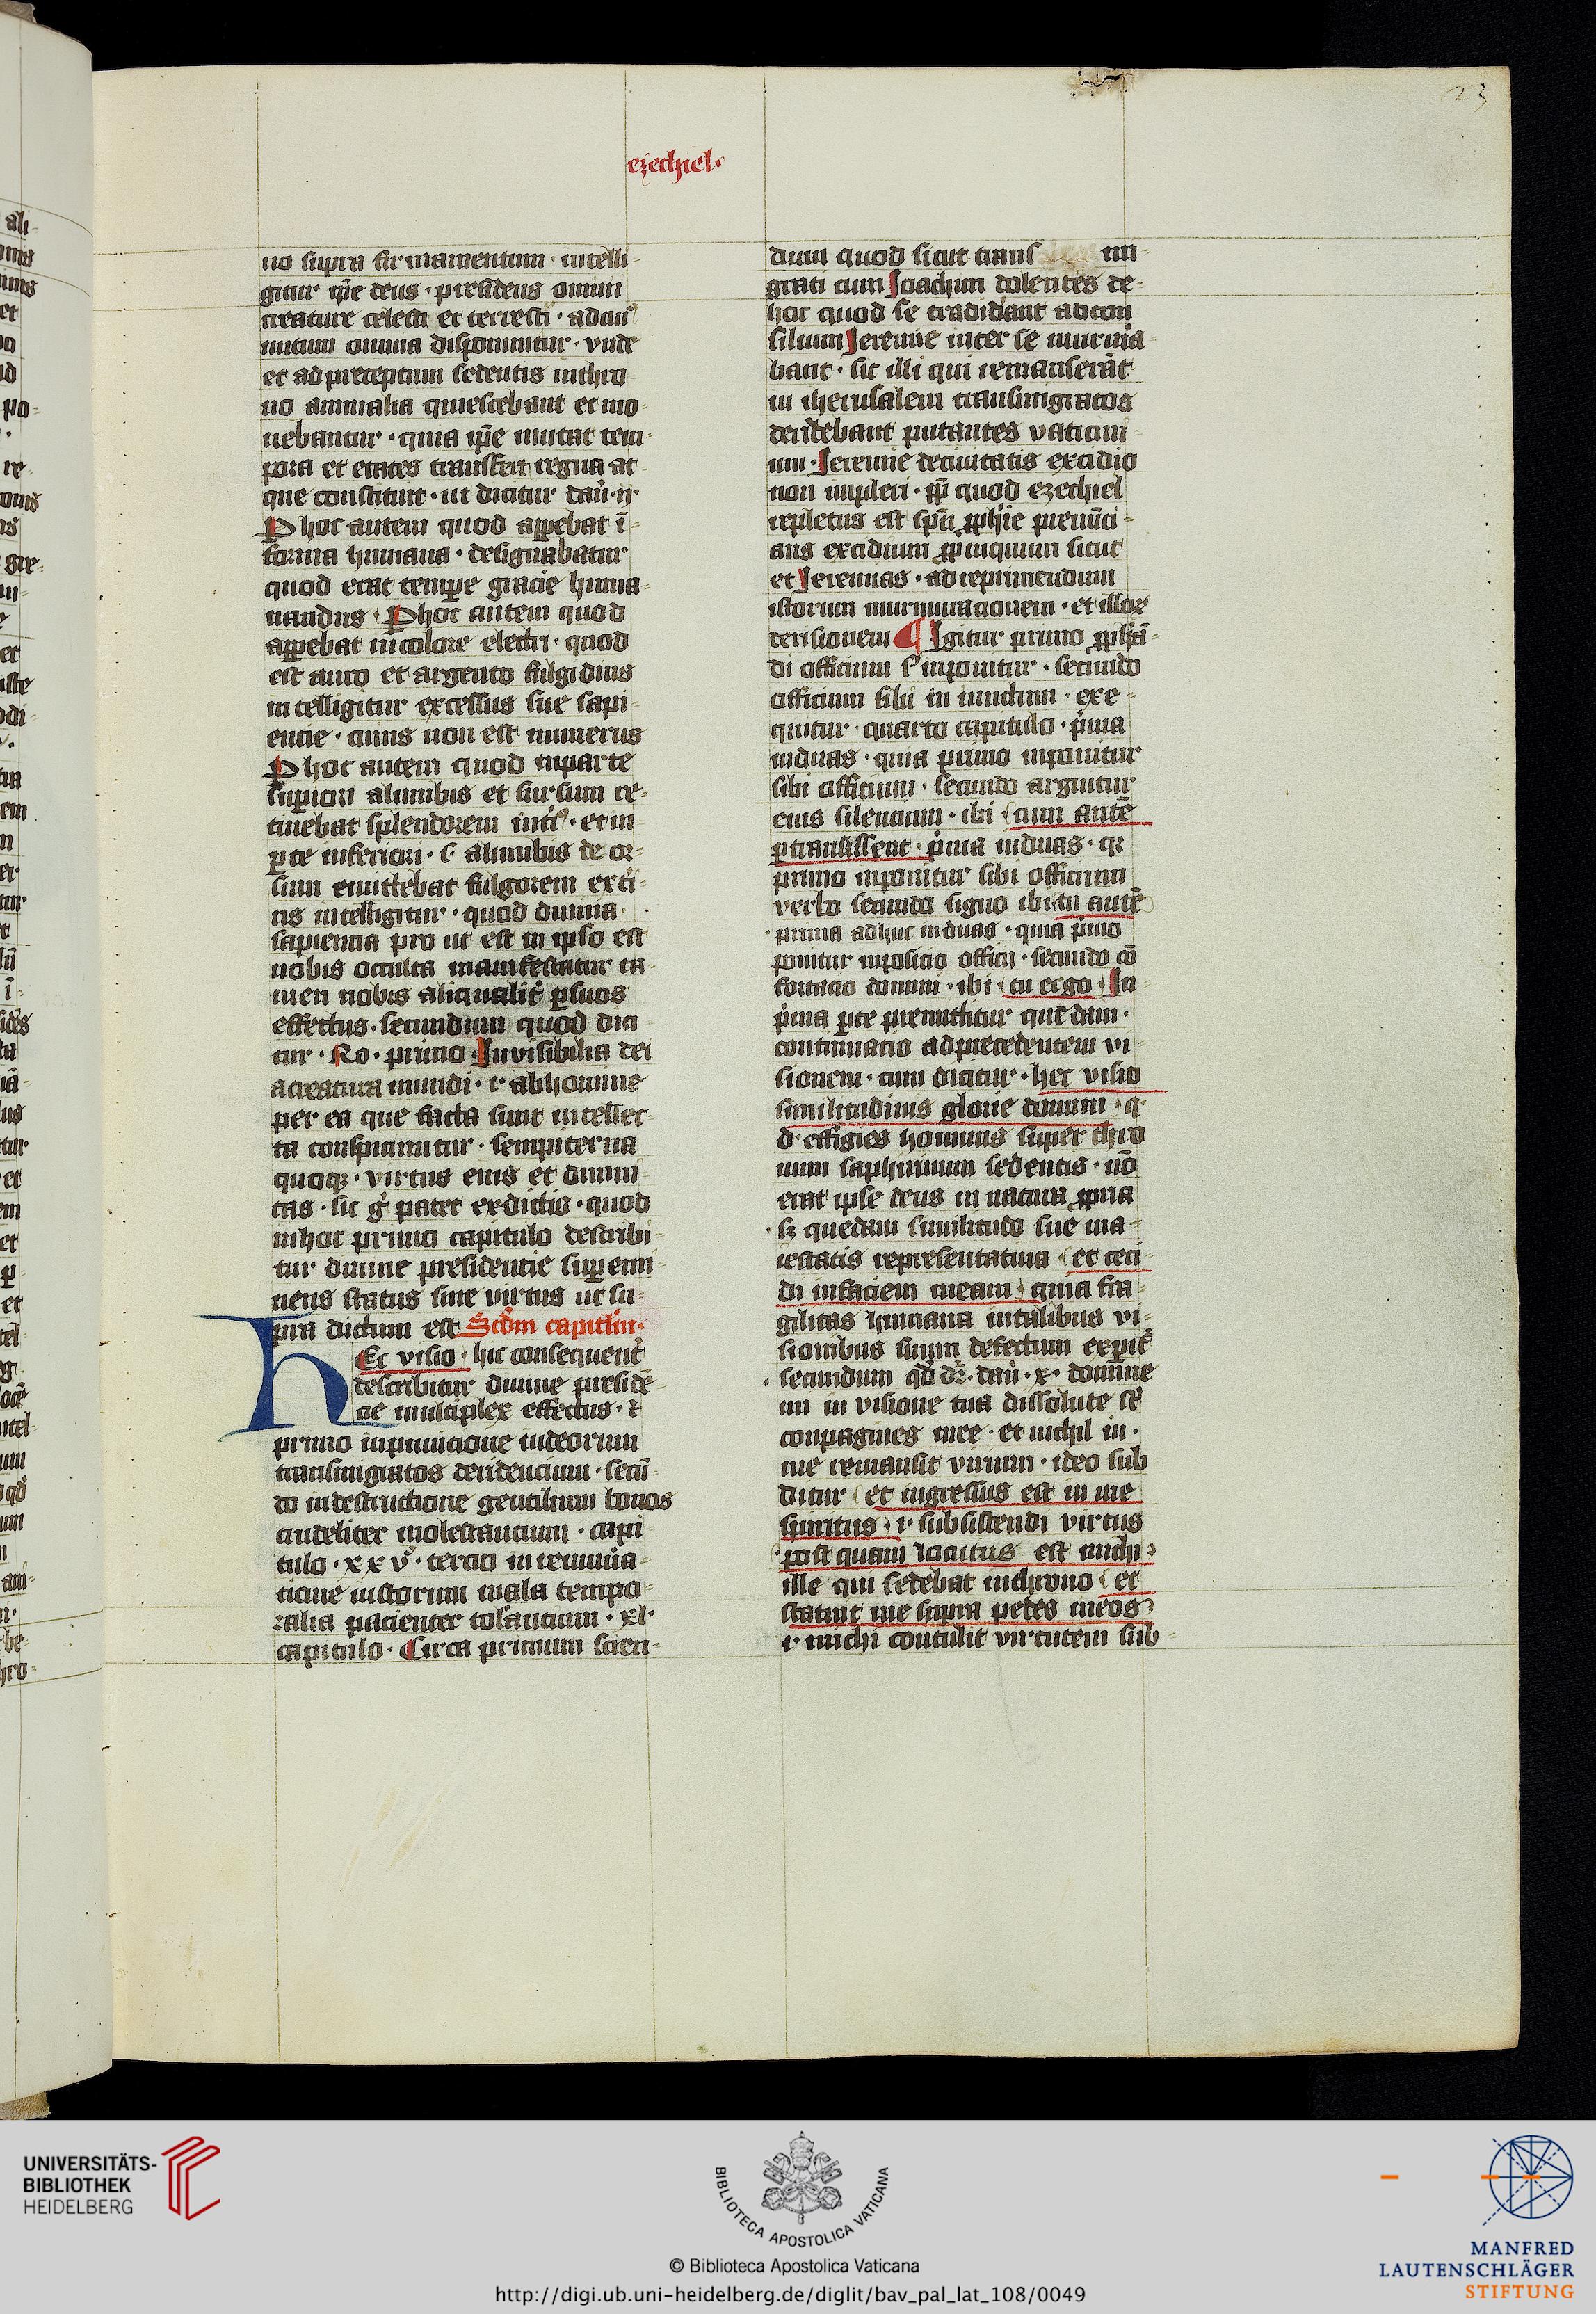 23
ezechiel·
no supra firmamentum · intelli-
gitur ip̄e deus · presidens omni
creature celesti et terrestri · ad cuiꝰ
nutum omnia disponuntur · vnde
et ad preceptum sedentis in thro
no animalia quiescebant et mo-
uebantur · quia ip̄e mutat tem-
pora et etates transfert regna at-
que constituit · ut dicitur dan̄ · ii·
P hoc autem quod apꝑebat ī-
forma humana · designabatur
quod erat temꝑe gracie huma-
nandus · P hoc autem quod
apꝑebat in colore electri · quod
est auro et argento fulgidius
intelligitur excessus sue sapi-
encie · cuius non est numerus
P hoc autem quod in parte
suꝑiori a lumbis et sursum re-
tinebat splendorem intꝰ · et in
ꝑte inferiori · s· a lumbis deor-
sum emittebat fulgorem extī-
tis intelligitur · quod diuina
sapiencia pro ut est in ipso est
nobis occulta manifestatur ta-
men nobis aliqualit̓ ꝑ suos
effectus · secundum quod dici
tur · Ro· primo · Inuisibilia dei
a creatura mundi · i· ab homine
per ea que facta sunt intellec-
ta conspiciuntur · sempiterna
quoqꝫ · virtus eius et diuini-
tas · sic g̊ patet ex dictis · quod
in hoc primo capitulo describi-
tur diuine presidentie suꝑemi-
nens status siue virtus ut su-
pra dictum est Scd̄m capitl̄m·
HEc visio · hic consequent̓
describitur diuine presidē-
cie multiplex effectus · ⁊
primo in punicione iudeorum
transmigratos deridencium · secū-
do in destructione gentilium bonos
crudeliter molestancium · capi
tulo · xxvͦ · tercio in remuna-
cione iustorum mala tempo-
ralia pacienter tolerantium · xl·
capitulo · Circa primum scien-
dum quod sicut trans mi-
grati cum Joachim dolentes de-
hoc quod se tradiderant ad con
silium Jeremie inter se murmura-
bant · sic illi qui remanserāt
in iherusalem transmigratos
deridebant putantes vaticini-
um · Jeremie de ciuitatis excidio
non impleri · ꝓp̄ quod ezechiel
repletus est sp̄u ꝓph̄ie prenūci-
ans excidium ꝓpinquum sicut
et Jeremias · ad reprimendum
istorum murmuracionem · et illoꝝ
derisionem ¶ Igitur primo ꝓph̄tā-
di officium s̓ inponitur · secundo
officium sibi in iunctum · exe-
quitur · quarto capitulo · p̓ma
in duas · quia primo inponitur
sibi officium · secundo arguitur
eius silencium · ibi cum autē
ꝑtransissent · p̓ma in duas · qꝛ
primo inponitur sibi officium
verbo secundo signo ibi tu autē
prima adhuc in duas · quia p̓mo
ponitur inposicio officij · secundo cō
fortacio domini · ibi · tu ergo · In-
p̓ma ꝑte premittitur quedam ·
continuacio ad precedentem vi-
sionem · cum dicitur · hec visio
similitudinis glorie domini · q·
d· effigies hominis super thro
num saphirinum sedentis · nō
erat ipse deus in natura ꝓpria
sꝫ quedam similitudo sue ma-
iestatis representatiua et ceci-
di in faciem meam · quia fra-
gilitas humana in talibus vi-
sionibus suum defectum exꝑit̓
secundum qd̓ dr̄ · dan̄ · x· domine
mi in visione tua dissolute st̄
conpagines mee · et nichil in ·
me remansit virium · ideo sub
ditur et ingressus est in me
spiritus · i· subsistendi virtus
post quam locutus est michi
ille qui sedebat in throno et
statuit me supra pedes meos
i· michi contulit virtutem sub-
UNIVERSITÄTS-
BIBLIOTHEK
HEIDELBERG
BIBLIOTECA APOSTOLICA VATICANA
© Biblioteca Apostolica Vaticana
http://digi.ub.uni-heidelberg.de/diglit/bav_pal_lat_108/0049
MANFRED
LAUTENSCHLÄGER
STIFTUNG